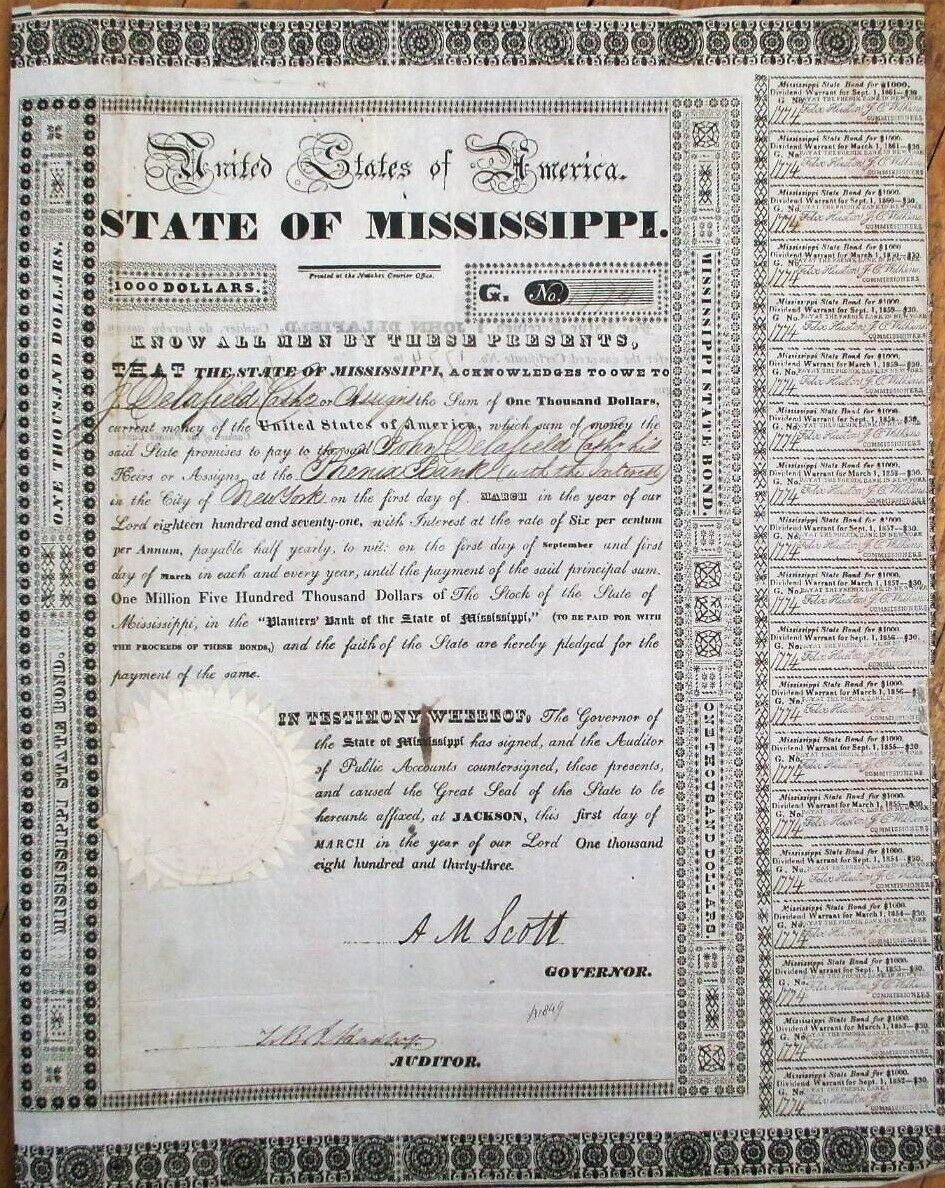 United States of America.
STATE OF MISSISSIPPI.
Printed at the Natchez Courier Office.
1000 DOLLARS.
G. No.
JOHN DELAFIELD, Cashier, do hereby
KNOW ALL MEN BY THESE PRESENTS,
THAT THE STATE OF MISSISSIPPI, ACKNOWLEDGES TO OWE TO
J. Delafield Cashr or Assigns the Sum of One Thousand Dollars,
current money of the United States of America, which sum of money the
said State promises to pay to the said John Delafield Cashr his
Heirs or Assigns, at the Phenix Bank (with the Interest)
in the City of New York on the first day of MARCH in the year of our
Lord eighteen hundred and seventy-one, with Interest at the rate of Six per centum
per Annum, payable half yearly, to wit: on the first day of September and first
day of March in each and every year, until the payment of the said principal sum.
One Million Five Hundred Thousand Dollars of The Stock of the State of
Mississippi, in the "Planters' Bank of the State of Mississippi," (TO BE PAID FOR WITH
THE PROCEEDS OF THESE BONDS,) and the faith of the State are hereby pledged for the
payment of the same.
IN TESTIMONY WHEREOF, The Governor of
the State of Mississippi has signed, and the Auditor
of Public Accounts countersigned, these presents,
and caused the Great Seal of the State to be
hereunto affixed, at JACKSON, this first day of
MARCH in the year of our Lord One thousand
eight hundred and thirty-three.
A M Scott
GOVERNOR.
A1849
AUDITOR.
ONE THOUSAND DOLLARS.
MISSISSIPPI STATE BOND.
MISSISSIPPI STATE BOND.
ONE THOUSAND DOLLARS.
Mississippi State Bond for $1000,
Dividend Warrant for Sept. 1, 1861—$30
G. No. PAY AT THE PHENIX BANK IN NEW YORK
1774 Felix Huston J. C. Wilkins
COMMISSIONERS
Mississippi State Bond for $1000.
Dividend Warrant for March 1, 1861—$30.
G. No. PAY AT THE PHENIX BANK IN NEW YORK
1774 Felix Huston J. C. Wilkins
COMMISSIONERS
Mississippi State Bond for $1000
Dividend Warrant for Sept. 1, 1860—$30.
G. No. PAY AT THE PHENIX BANK IN NEW YORK
1774 Felix Huston J. C. Wilkins
COMMISSIONERS
Mississippi State Bond for $1000.
Dividend Warrant for March 1, 1860—$30.
G. No. PAY AT THE PHENIX BANK IN NEW YORK
1774 Felix Huston J. C. Wilkins
COMMISSIONERS
Mississippi State Bond for $1000
Dividend Warrant for Sept. 1, 1859—$30.
G. No. PAY AT THE PHENIX BANK IN NEW YORK
1774 Felix Huston J. C. Wilkins
COMMISSIONERS
Mississippi State Bond for $1000.
Dividend Warrant for March 1, 1859—$30.
G. No. PAY AT THE PHENIX BANK IN NEW YORK
1774 Felix Huston J. C. Wilkins
COMMISSIONERS
Mississippi State Bond for $1000.
Dividend Warrant for Sept. 1, 1858—$30.
G. No. PAY AT THE PHENIX BANK IN NEW YORK
1774 Felix Huston J. C. Wilkins
COMMISSIONERS
Mississippi State Bond for $1000.
Dividend Warrant for March 1, 1858—$30.
G. No. PAY AT THE PHENIX BANK IN NEW YORK
1774 Felix Huston J. C. Wilkins
COMMISSIONERS
Mississippi State Bond for $1000.
Dividend Warrant for Sept. 1, 1857—$30
G. No. PAY AT THE PHENIX BANK IN NEW YORK
1774 Felix Huston J. C. Wilkins
COMMISSIONERS
Mississippi State Bond for $1000.
Dividend Warrant for March 1, 1857—$30.
G. No. PAY AT THE PHENIX BANK IN NEW YORK
1774 Felix Huston J. C. Wilkins
COMMISSIONERS
Mississippi State Bond for $1000.
Dividend Warrant for Sept. 1, 1856—$30.
G. No. PAY AT THE PHENIX BANK IN NEW YORK
1774 Felix Huston J. C. Wilkins
COMMISSIONERS
Mississippi State Bond for $1000.
Dividend Warrant for March 1, 1856—$30
G. No. PAY AT THE PHENIX BANK IN NEW YORK
1774 Felix Huston J. C. Wilkins
COMMISSIONERS
Mississippi State Bond for $1000.
Dividend Warrant for Sept. 1, 1855—$30.
G. No. PAY AT THE PHENIX BANK IN NEW YORK
1774 Felix Huston J. C. Wilkins
COMMISSIONERS
Mississippi State Bond for $1000.
Dividend Warrant for March 1, 1855—$30.
G. No. PAY AT THE PHENIX BANK IN NEW YORK
1774 Felix Huston J. C. Wilkins
COMMISSIONERS
Mississippi State Bond for $1000.
Dividend Warrant for Sept. 1, 1854—$30.
G. No. PAY AT THE PHENIX BANK IN NEW YORK
1774 Felix Huston J. C. Wilkins
COMMISSIONERS
Mississippi State Bond for $1000.
Dividend Warrant for March 1, 1854—$30.
G. No. PAY AT THE PHENIX BANK IN NEW YORK
1774 Felix Huston J. C. Wilkins
COMMISSIONERS
Mississippi State Bond for $1000.
Dividend Warrant for Sept. 1, 1853—$30.
G. No. PAY AT THE PHENIX BANK IN NEW YORK
1774 Felix Huston J. C. Wilkins
COMMISSIONERS
Mississippi State Bond for $1000.
Dividend Warrant for March 1, 1853—$30
G. No. PAY AT THE PHENIX BANK IN NEW YORK
1774 Felix Huston J. C. Wilkins
COMMISSIONERS
Mississippi State Bond for $1000.
Dividend Warrant for Sept. 1, 1852—$30
G. No. PAY AT THE PHENIX BANK IN NEW YORK
1774 Felix Huston J. C. Wilkins
COMMISSIONERS